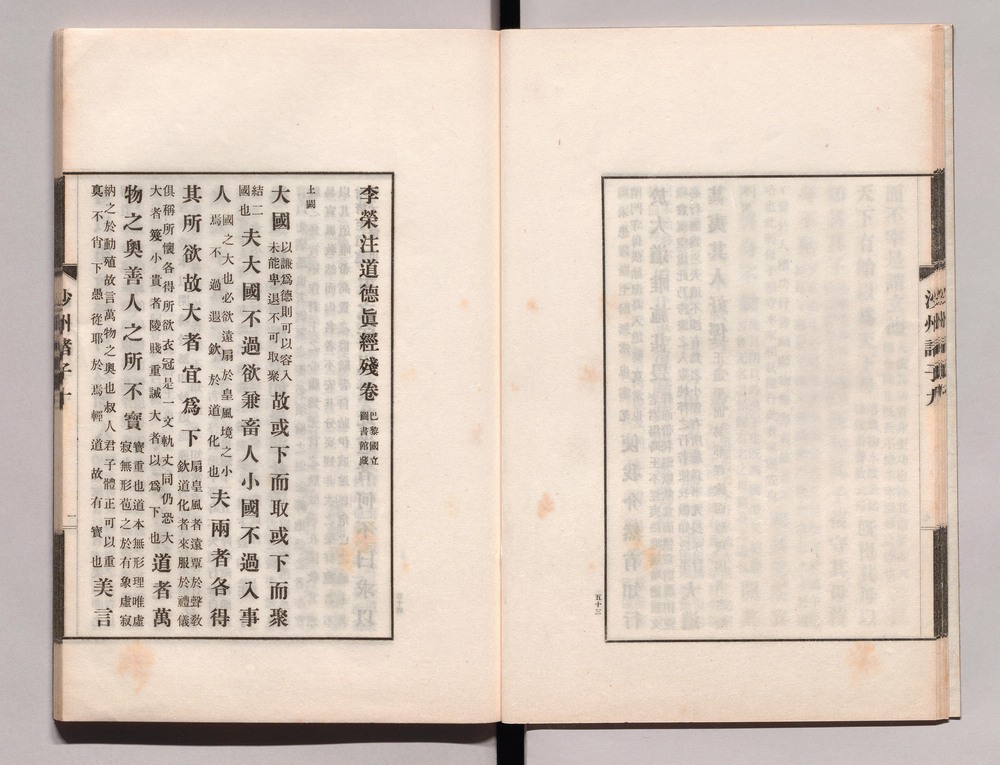 沙州諸子九
五十三
李榮注道德眞經殘卷 巴黎國立
圖書館藏
上闕
大國 以謙爲德則可以容入
未能卑退不可取聚
故或下而取或下而聚
結二
國也
夫大國不過欲兼畜人小國不過入事
人 國之大也必欲遠扇於皇風境之小
焉不過遐欽於道化也
夫兩者各得
其所欲故大者宜爲下 扇皇風者遠覃於聲敎
欽道化者來服於禮儀
俱稱所懷各得所欲衣冠是一文軌丈同仍恐大
大者篾小貴者陵賤重誡大者以爲下也
道者萬
物之奥善人之所不寶 寶重也道本無形理唯虛
寂無形苞之於有象虛寂
納之於動殖故言萬物之奥也叔人君子體正可以重
不肖下愚從耶於焉輕道故有寶也
美言
沙州諸子十
一